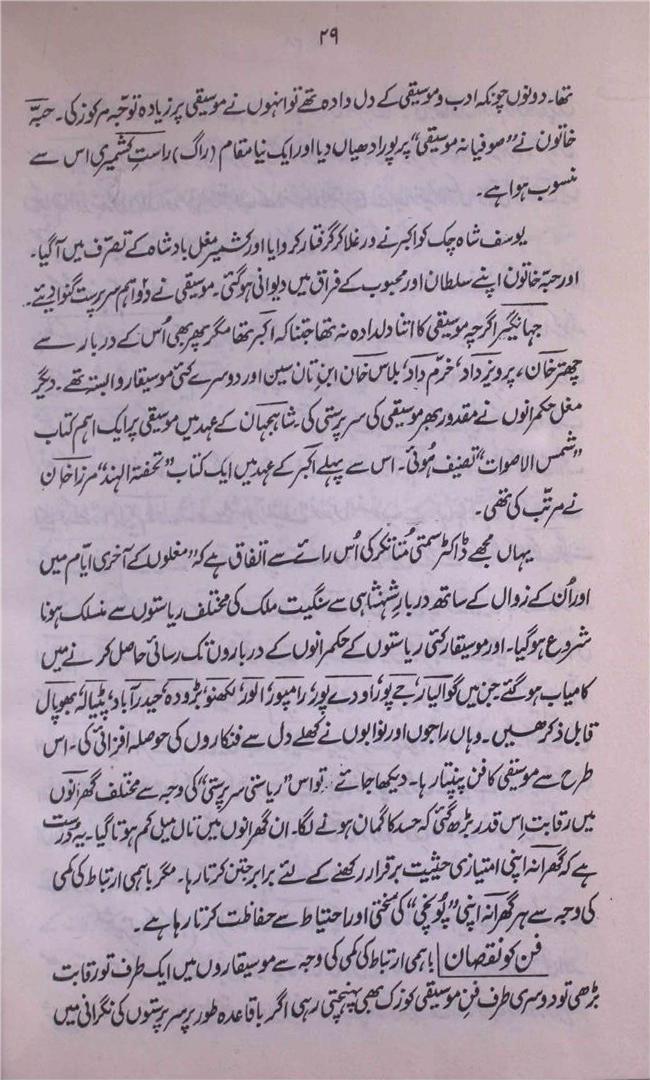 ۲۹
تھا۔ دونوں چونکہ ادب و موسیقی کے دل دادہ تھے تو انہوں نے موسیقی پر زیادہ توجّہ مرکوز کی۔ حبّہ
خاتون نے ”صوفیانہ موسیقی“ پر پورا دھیان دیا اور ایک نیا مقام (راگ) راست کشمیری اس سے
منسوب ہوا ہے۔
یوسف شاہ چک کو اکبر نے ورغلا کر گرفتار کروایا اور کشمیر مغل بادشاہ کے تصرّف میں آگیا۔
اور حبّہ خاتون اپنے سلطان اور محبوب کے فراق میں دیوانی ہوگئی۔ موسیقی نے دو اہم سرپرست گنوا دیئے۔
جہانگیر اگرچہ موسیقی کا اتنا دلدادہ نہ تھا جتنا کہ اکبر تھا مگر پھر بھی اُس کے دربار سے
چھتر خان، پرویز داد، خرّم داد، بلاس خان ابنِ تان سین اور دوسرے کئی موسیقار وابستہ تھے۔ دیگر
مغل حکمرانوں نے مقدور بھر موسیقی کی سرپرستی کی۔ شاہجہان کے عہد میں موسیقی پر ایک اہم کتاب
”شمس الاصوات“ تصنیف ہوئی۔ اس سے پہلے اکبر کے عہد میں ایک کتاب ”تحفۃ الہند“ مرزا خان
نے مرتّب کی تھی۔
یہاں مجھے ڈاکٹر سمتی مُتناٹکر کی اُس رائے سے اتفاق ہے کہ ”مغلوں کے آخری ایّام میں
اور اُن کے زوال کے ساتھ دربارِ شہنشاہی سے سنگیت ملک کی مختلف ریاستوں سے منسلک ہونا
شروع ہوگیا۔ اور موسیقار کئی ریاستوں کے حکمرانوں کے درباروں تک رسائی حاصل کرنے میں
کامیاب ہوگئے جن میں گوالیار، جے پور، اودے پور، رامپور، الور، لکھنو، بڑودہ، حیدرآباد، پٹیالہ، بھوپال
قابل ذکر ھیں۔ وہاں راجوں اور نوابوں نے کھلے دل سے فنکاروں کی حوصلہ افزائی کی۔ اس
طرح سے موسیقی کا فن پنپتا رہا۔ دیکھا جائے تو اس ”ریاستی سرپرستی“ کی وجہ سے مختلف گھرانوں
میں رقابت اِس قدر بڑھ گئی کہ حسد کا گمان ہونے لگا۔ ان گھرانوں میں تال میل کم ہوتا گیا۔ یہ درست
ہے کہ گھرانہ اپنی امتیازی حیثیت برقرار رکھنے کے لئے برابر جتن کرتا رہا۔ مگر باہمی ارتباط کی کمی
کی وجہ سے ہر گھرانہ اپنی ”پُونجی“ کی سختی اور احتیاط سے حفاظت کرتا رہا ہے۔
فن کو نقصان | باہمی ارتباط کی کمی کی وجہ سے موسیقاروں میں ایک طرف تو رقابت
بڑھی تو دوسری طرف فنِ موسیقی کو زک بھی پہنچتی رہی اگر باقاعدہ طور پر سرپرستوں کی نگرانی میں